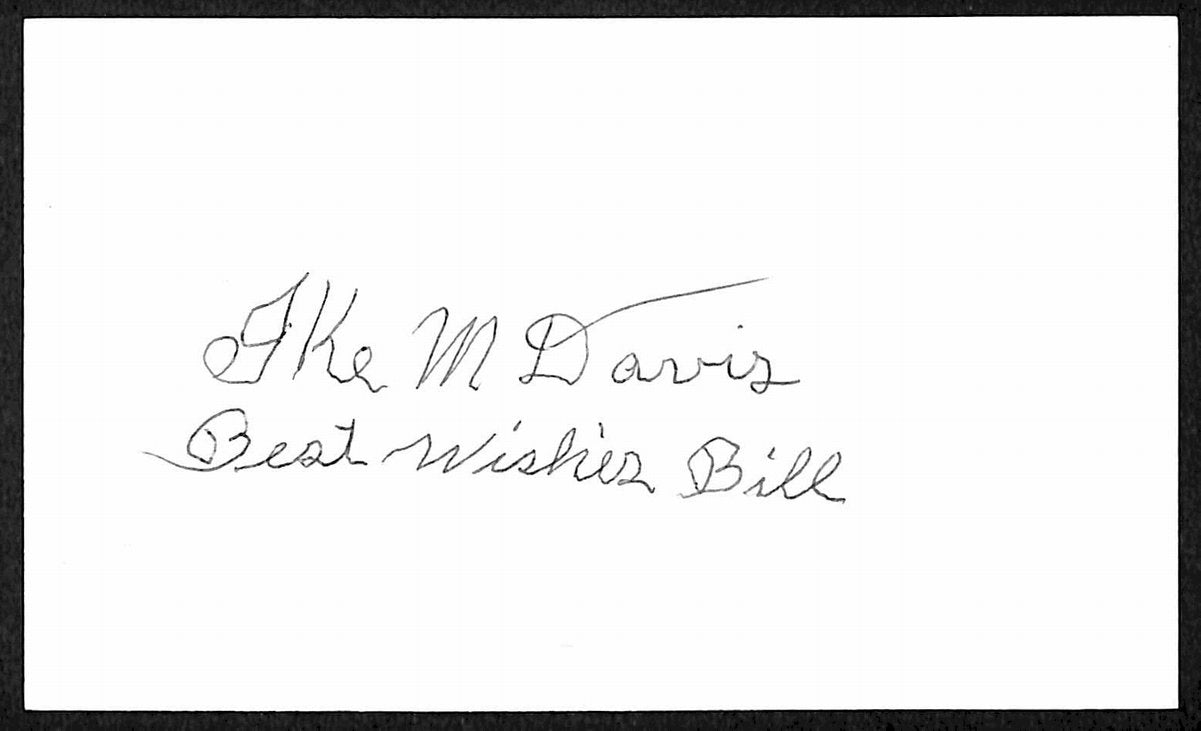 Ike M Davis
Best Wishes Bill